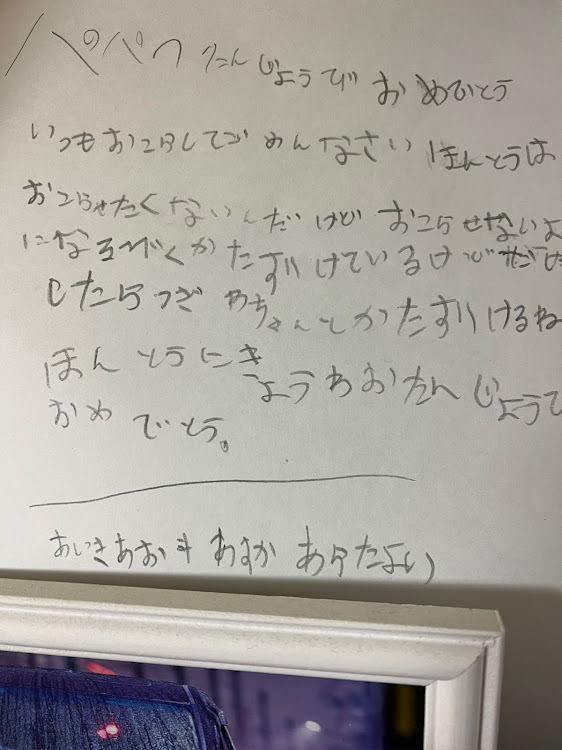 パパへ たんじょうび おめでとう
いつもおこらしてごめんなさい ほんとうは
おこらせたくないんだけど おこらせないよ
になるべくかたずけているけど
したらつぎわちゃんとかたずけるね
ほんとうにきょうわおたんじょうび
おめでとう。
より